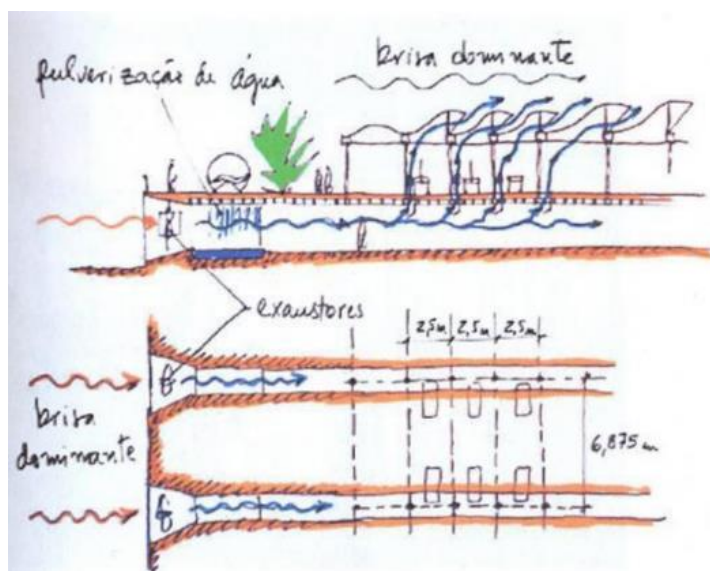 brisa dominante
pulverização de água
exaustores
2,5m 2,5m 2,5m
brisa
dominante
6,875 m